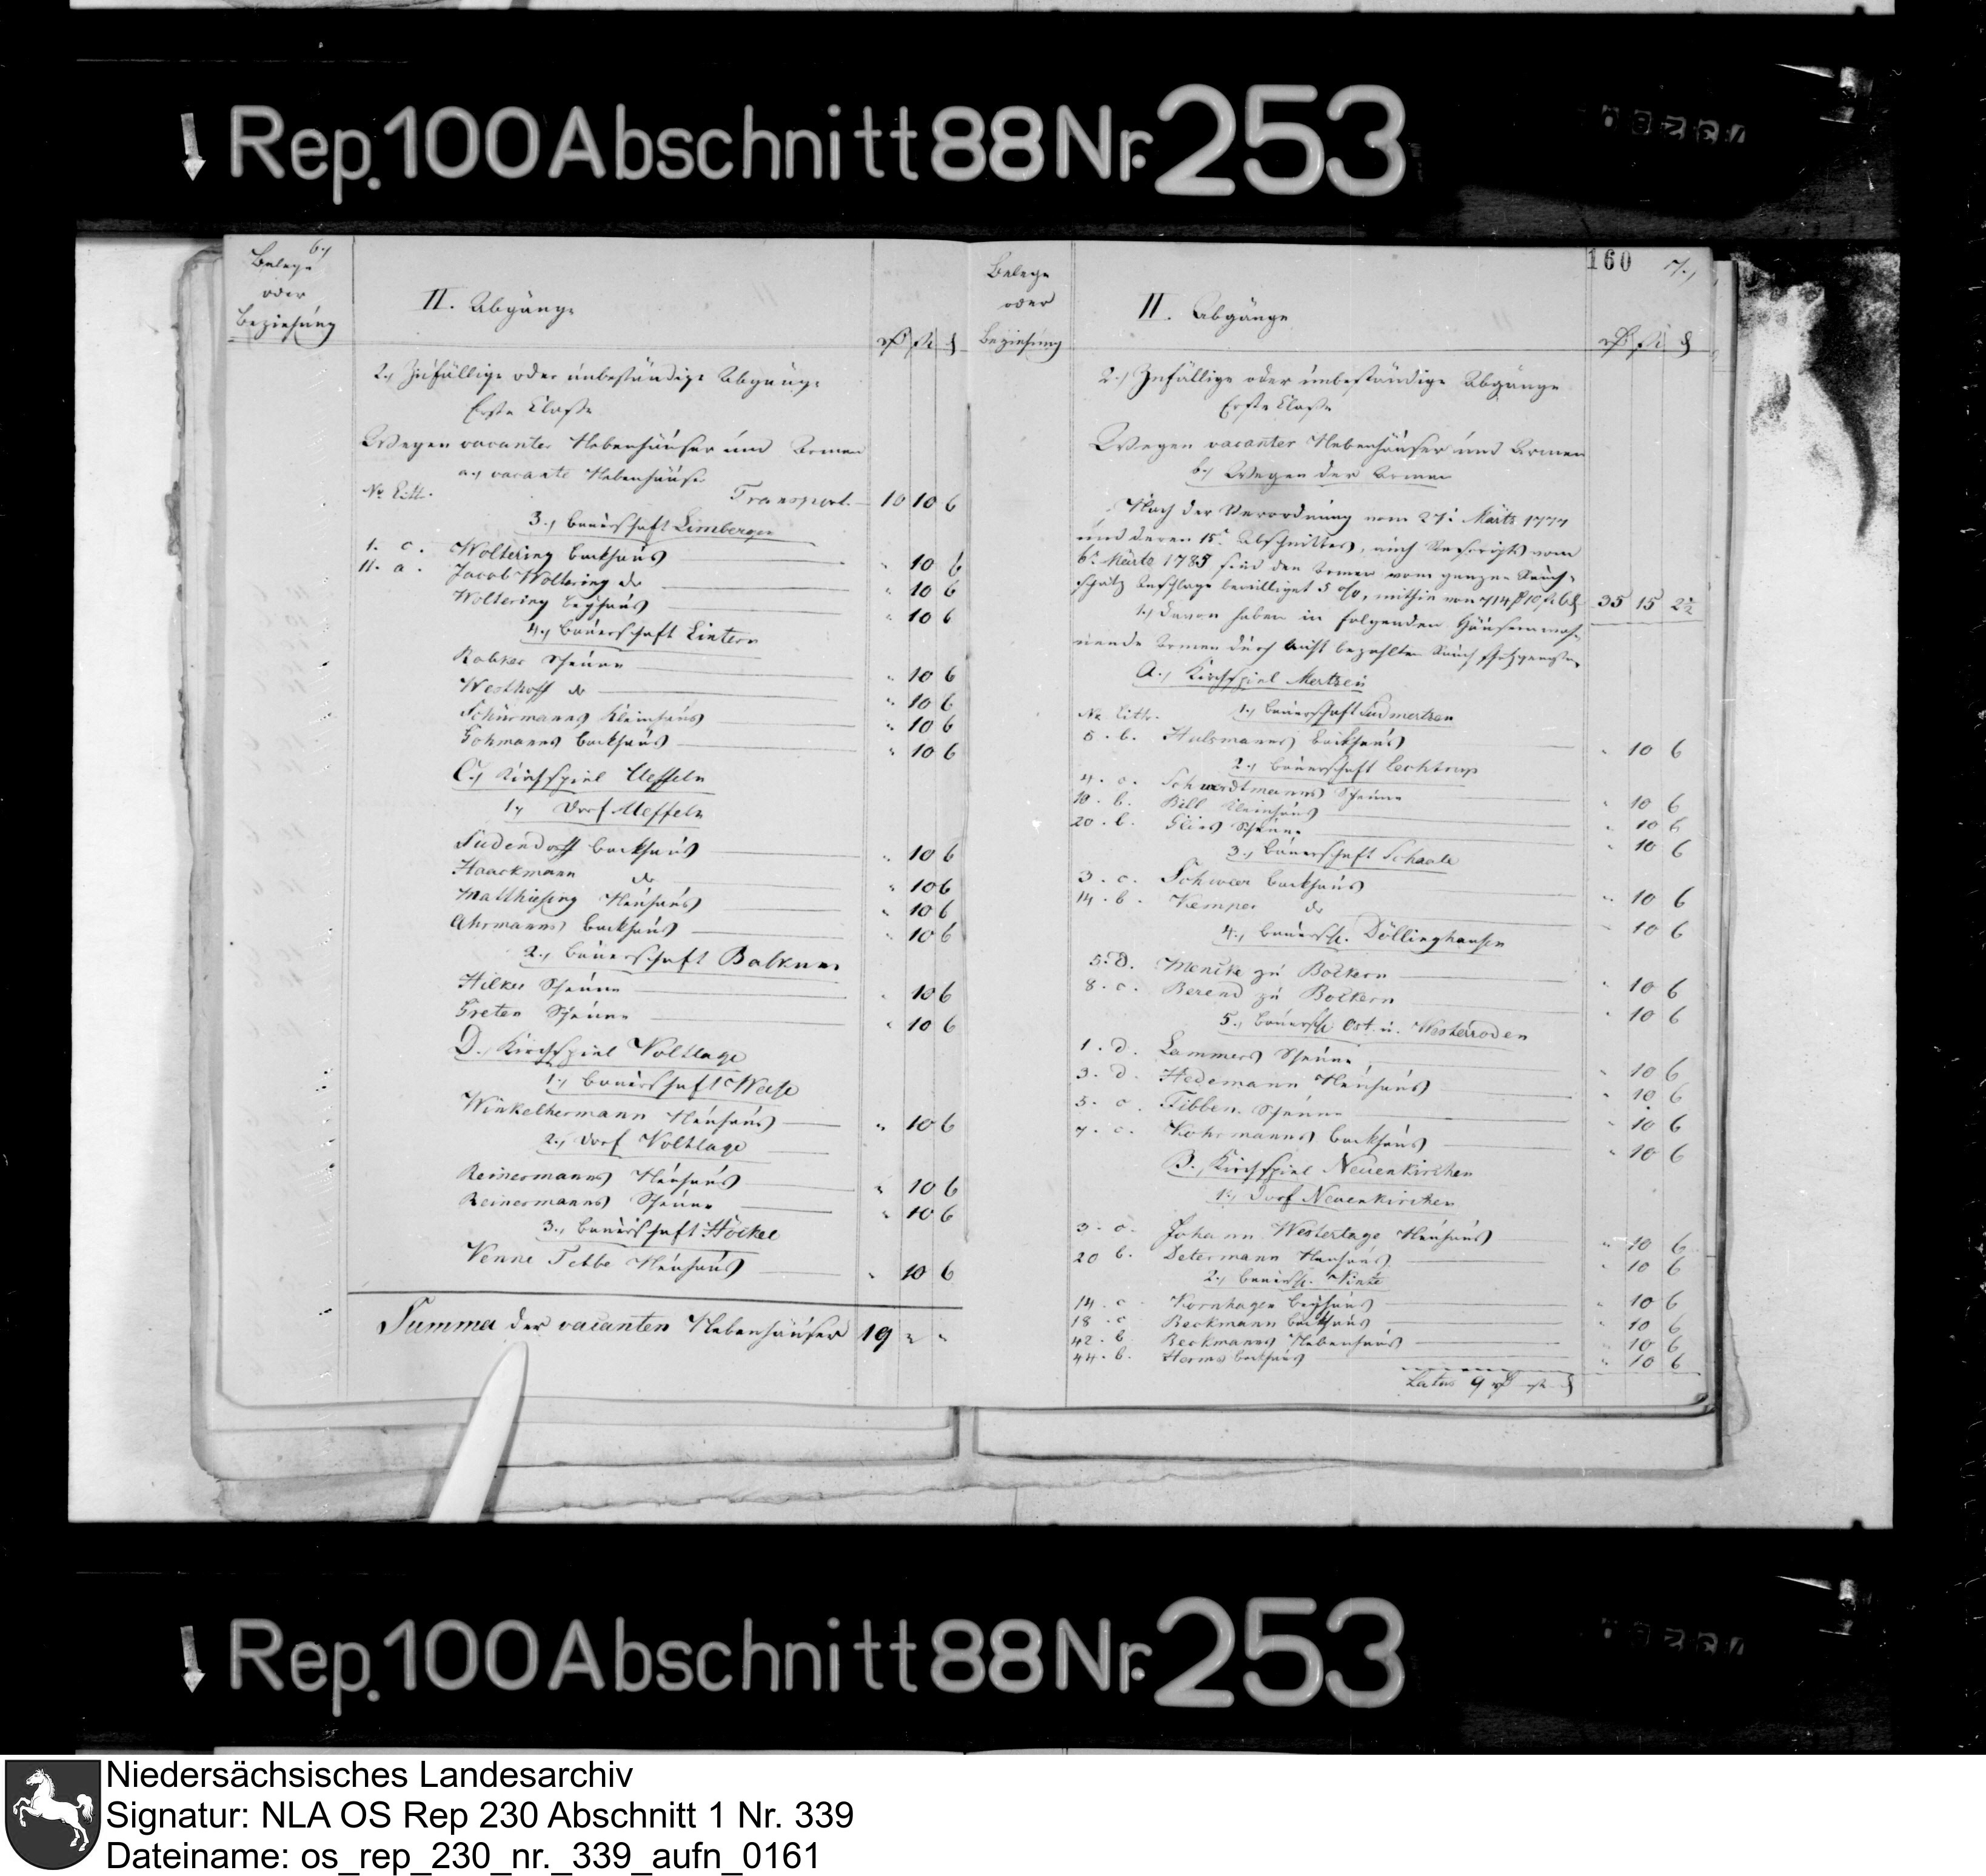 Rep. 100 Abschnitt 88 Nr. 253
6.,
Belege
oder
Beziehung
II. Abgänge
2., Zufällige oder unbeständige Abgänge
Erste Classe
Wegen vacanter Nebenhäuser und Armen
a., vacante Nebenhäuser
No Litt. Transport. 10 10 6
3., Bauerschaft Limbergen
1. c. Woltering Backhaus " 10 6
11. a. Jacob Woltering do " 10 6
Woltering Leyhaus " 10 6
4., Bauerschaft Lintern
Robker Scheune " 10 6
Westhoff do " 10 6
Schürmanns Kleinhaus " 10 6
Gohmanns Backhaus " 10 6
C., Kirchspiel Ueffeln
1., Dorf Ueffeln
Sudendorff Backhaus " 10 6
Haackmann do " 10 6
Matthiesing Neuhaus " 10 6
Ahrmanns Backhaus " 10 6
2., Bauerschaft Balkum
Hilker Scheune " 10 6
Greten Scheune " 10 6
D., Kirchspiel Voltlage
1., Bauerschaft Weese
Winkelhermann Neuhaus " 10 6
2., Dorf Voltlage
Reinermanns Neuhaus " 10 6
Reinermanns Scheune " 10 6
3., Bauerschaft Höckel
Venne Tebbe Neuhaus " 10 6
Summa der vacanten Nebenhäuser 19 " "
160 7.,
Belege
oder
Beziehung
II. Abgänge
2., Zufällige oder unbeständige Abgänge
Erste Classe
Wegen vacanter Nebenhäuser und Armen
b., Wegen der Armen
Nach der Verordnung vom 27. Märtz 1777
und deren 15n Abschnittes, auch Rescripts vom
6n Märtz 1785 sind den Armen vom ganzen Rauch-
schatz Anschlage bewilliget 5 %, mithin von 714 10 6 35 15 2½
1., Davon haben in folgenden Häusern woh-
nende Armen durch nicht bezahlten Rauchschatz genossen
A., Kirchspiel Mertzen
No Littr. 1., Bauerschaft Südmertzen
5. b. Hulsmanns Backhaus " 10 6
2., Bauerschaft Lechtrup
4. c. Schwerdtmanns Scheune " 10 6
10. b. Bill Kleinhaus " 10 6
20. b. Glins Scheune " 10 6
3., Bauerschaft Schaale
3. c. Schweer Backhaus " 10 6
14. b. Kemper do " 10 6
4., Bauersch. Döllinghausen
5. d. Mencke zu Bockern " 10 6
8. c. Berend zu Bockern " 10 6
5., Bauersch. Ost u. Westerroden
1. d. Lammers Scheune " 10 6
3. d. Hedemann Neuhaus " 10 6
5. c. Tibben Scheune " 10 6
7. c. Kohrmanns Backhaus " 10 6
B., Kirchspiel Neuenkirchen
1., Dorf Neuenkirchen
3. c. Johann Westertage Neuhaus " 10 6
20 b. Determann Neuhaus " 10 6
2., Bauersch. Vinte
14. c Kornhagen Leyhaus " 10 6
18. c Beckmann Backhaus " 10 6
42. b Beckmanns Nebenhaus " 10 6
44. b. Herms Backhaus " 10 6
Latus 9
Rep. 100 Abschnitt 88 Nr. 253
Niedersächsisches Landesarchiv
Signatur: NLA OS Rep 230 Abschnitt 1 Nr. 339
Dateiname: os_rep_230_nr._339_aufn_0161